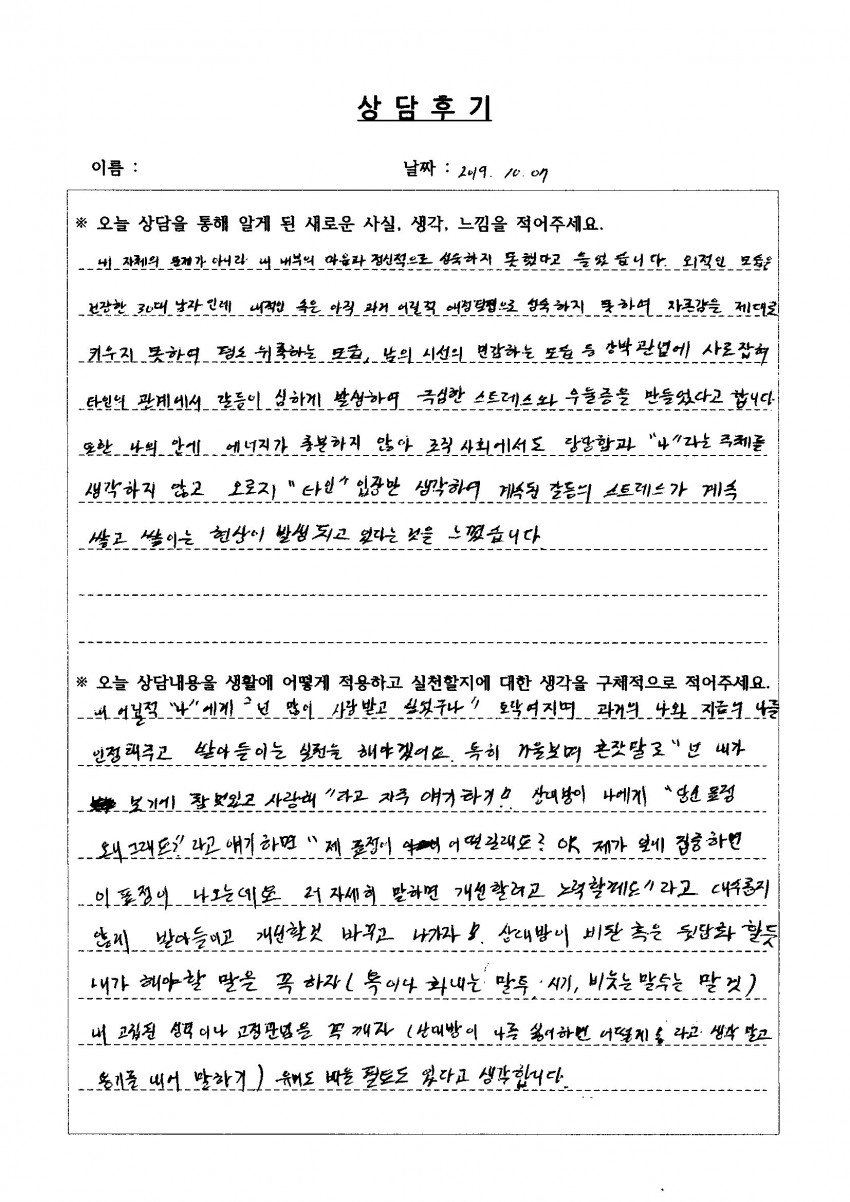 상 담 후 기
이름 :
날짜 : 2019. 10. 07
※ 오늘 상담을 통해 알게 된 새로운 사실, 생각, 느낌을 적어주세요.
내 자체의 문제가 아니라 내 내부의 마음과 정신적으로 성숙하지 못했다고 들었습니다. 외적인 모습은
건장한 30대 남자인데 내적인 속은 아직 과거 어릴적 애정결핍으로 성숙하지 못하여 자존감을 제대로
키우지 못하여 평소 위축하는 모습, 남의 시선의 민감하는 모습 등 강박관념에 사로잡혀
타인의 관계에서 갈등이 심하게 발생하여 극심한 스트레스와 우울증을 만들었다고 합니다
또한 나의 안에 에너지가 충분하지 않아 조직 사회에서도 당당함과 "나"라는 주체를
생각하지 않고 오로지 "타인" 입장만 생각하여 계속된 갈등의 스트레스가 계속
쌓고 쌓이는 현상이 발생되고 있다는 것을 느꼈습니다.
※ 오늘 상담내용을 생활에 어떻게 적용하고 실천할지에 대한 생각을 구체적으로 적어주세요.
내 어릴적 "나"에게 "넌 많이 사랑받고 싶었구나" 토닥여지며 과거의 나와 지금의 나를
인정해주고 쌀아들이는 실천을 해야겠어요. 특히 거울보며 혼잣말로 "넌 내가
보기에 잘 보였고 사랑해"라고 자주 얘기하기! 상대방이 나에게 "당신 표정
왜 그래요?"라고 얘기하면 "제 표정이 어떠길래요? OR 제가 일에 집중하면
이 표정이 나오는데요 더 자세히 말하면 개선할려고 노력할께요"라고 대수롭지
않게 받아들이고 개선할것 바꾸고 나가자! 상대방이 비판 혹은 뒷담화 할듯
내가 해야할 말은 꼭 하자 (욕이나 화내는 말투, 시기, 비웃는 말투는 말 것)
내 고립된 성격이나 고정관념을 꼭 깨자 (상대방이 나를 싫어하면 어떻게 라고 생각 말고
용기를 내어 말하기) 유머도 배울 필요도 있다고 생각합니다.